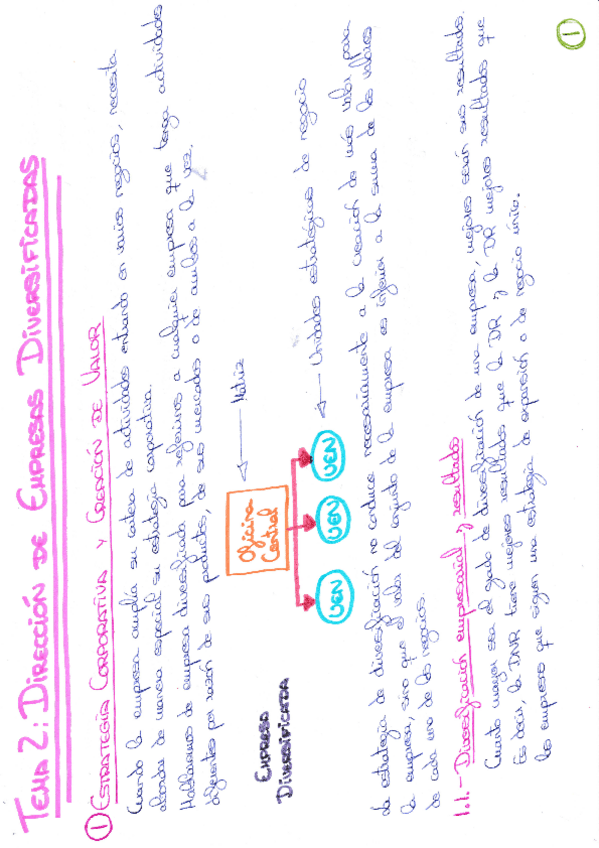 TEMA 2: DIRECCIÓN DE EMPRESAS DIVERSIFICADAS
① ESTRATEGIA CORPORATIVA Y CREACIÓN DE VALOR
Cuando la empresa amplía su cartera de actividades entrando en varios negocios, necesita
abordar de manera especial su estrategia corporativa.
Hablamos de empresa diversificada para referirnos a cualquier empresa que tenga actividades
diferentes por razón de sus productos, de sus mercados o de ambos a la vez.
EMPRESA
DIVERSIFICADA
Oficina
Central
← Matriz
UEN UEN UEN
← Unidades estratégicas de negocio
La estrategia de diversificación no conduce necesariamente a la creación de más valor para
la empresa, sino que el valor del conjunto de la empresa es inferior a la suma de los valores
de cada uno de los negocios.
1.1.- Diversificación empresarial y resultado
Cuanto mayor sea el grado de diversificación de una empresa, mejores serán sus resultados.
Es decir, la DNR tiene mejores resultados que la DR y la DR mejores resultados que
las empresas que siguen una estrategia de expansión o de negocio único.
①